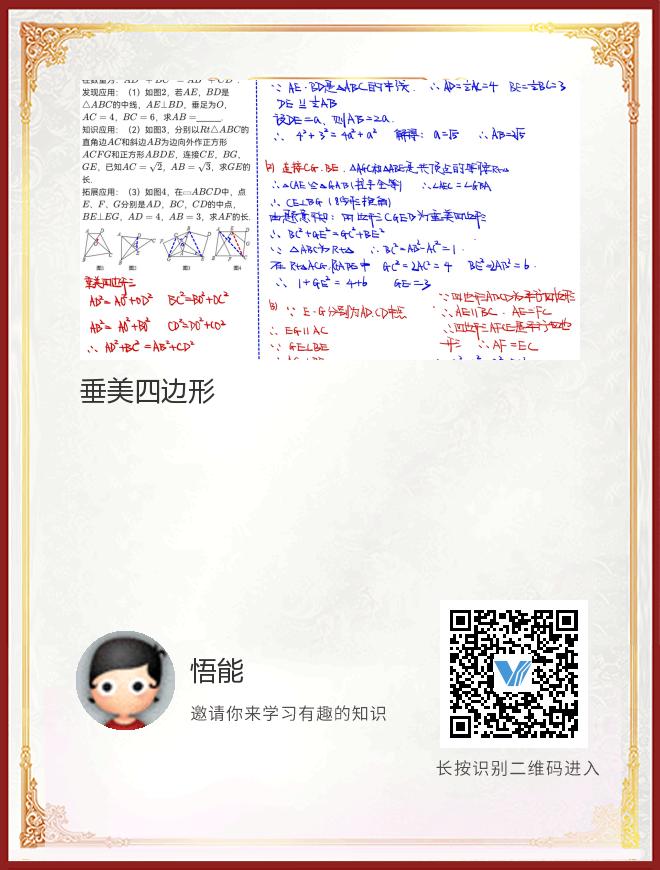 发现应用：（1）如图2，若AE，BD是
△ABC的中线，AE⊥BD，垂足为O，
AC = 4，BC = 6，求AB =_____.
知识应用：（2）如图3，分别以Rt△ABC的
直角边AC和斜边AB为边向外作正方形
ACFG和正方形ABDE，连接CE，BG，
GE，已知AC = √2，AB = √3，求GE的
长.
拓展应用：（3）如图4，在▱ABCD中，点
E、F、G分别是AD，BC，CD的中点，
BE⊥EG，AD = 4，AB = 3，求AF的长.
图1 图2 图3 图4
垂美四边形
AD²= AO²+OD² BC²=BO²+OC²
AB²= AO²+BO² CD²=DO²+CO²
∴ AD²+BC² =AB²+CD²
∵ AE、BD是△ABC的中线. ∴ AD=½AC=4 BE=½BC=3
DE ⫽ ½AB
设DE=a, 则AB=2a.
∴ 4²+3²= 4a²+a² 解得: a=√5
连接CG、BE.
∴△CAE≌△GAB
∴ CE⊥BG
由题意可知: 四边形CGED为垂美四边形
∴ BC²+GE²= GC²+BE²
∵ △ABC为Rt△ ∴ BC²=AB²-AC²=1.
GC²=2AC²=4 BE²=2AB²=6.
∴ 1+GE²= 4+6 GE=3
3) ∵ E、G分别为AD、CD中点
∴ EG∥AC
∵ GE⊥BE
∴AE∥BC AE=FC
∴AF=EC
垂美四边形
悟能
邀请你来学习有趣的知识
长按识别二维码进入